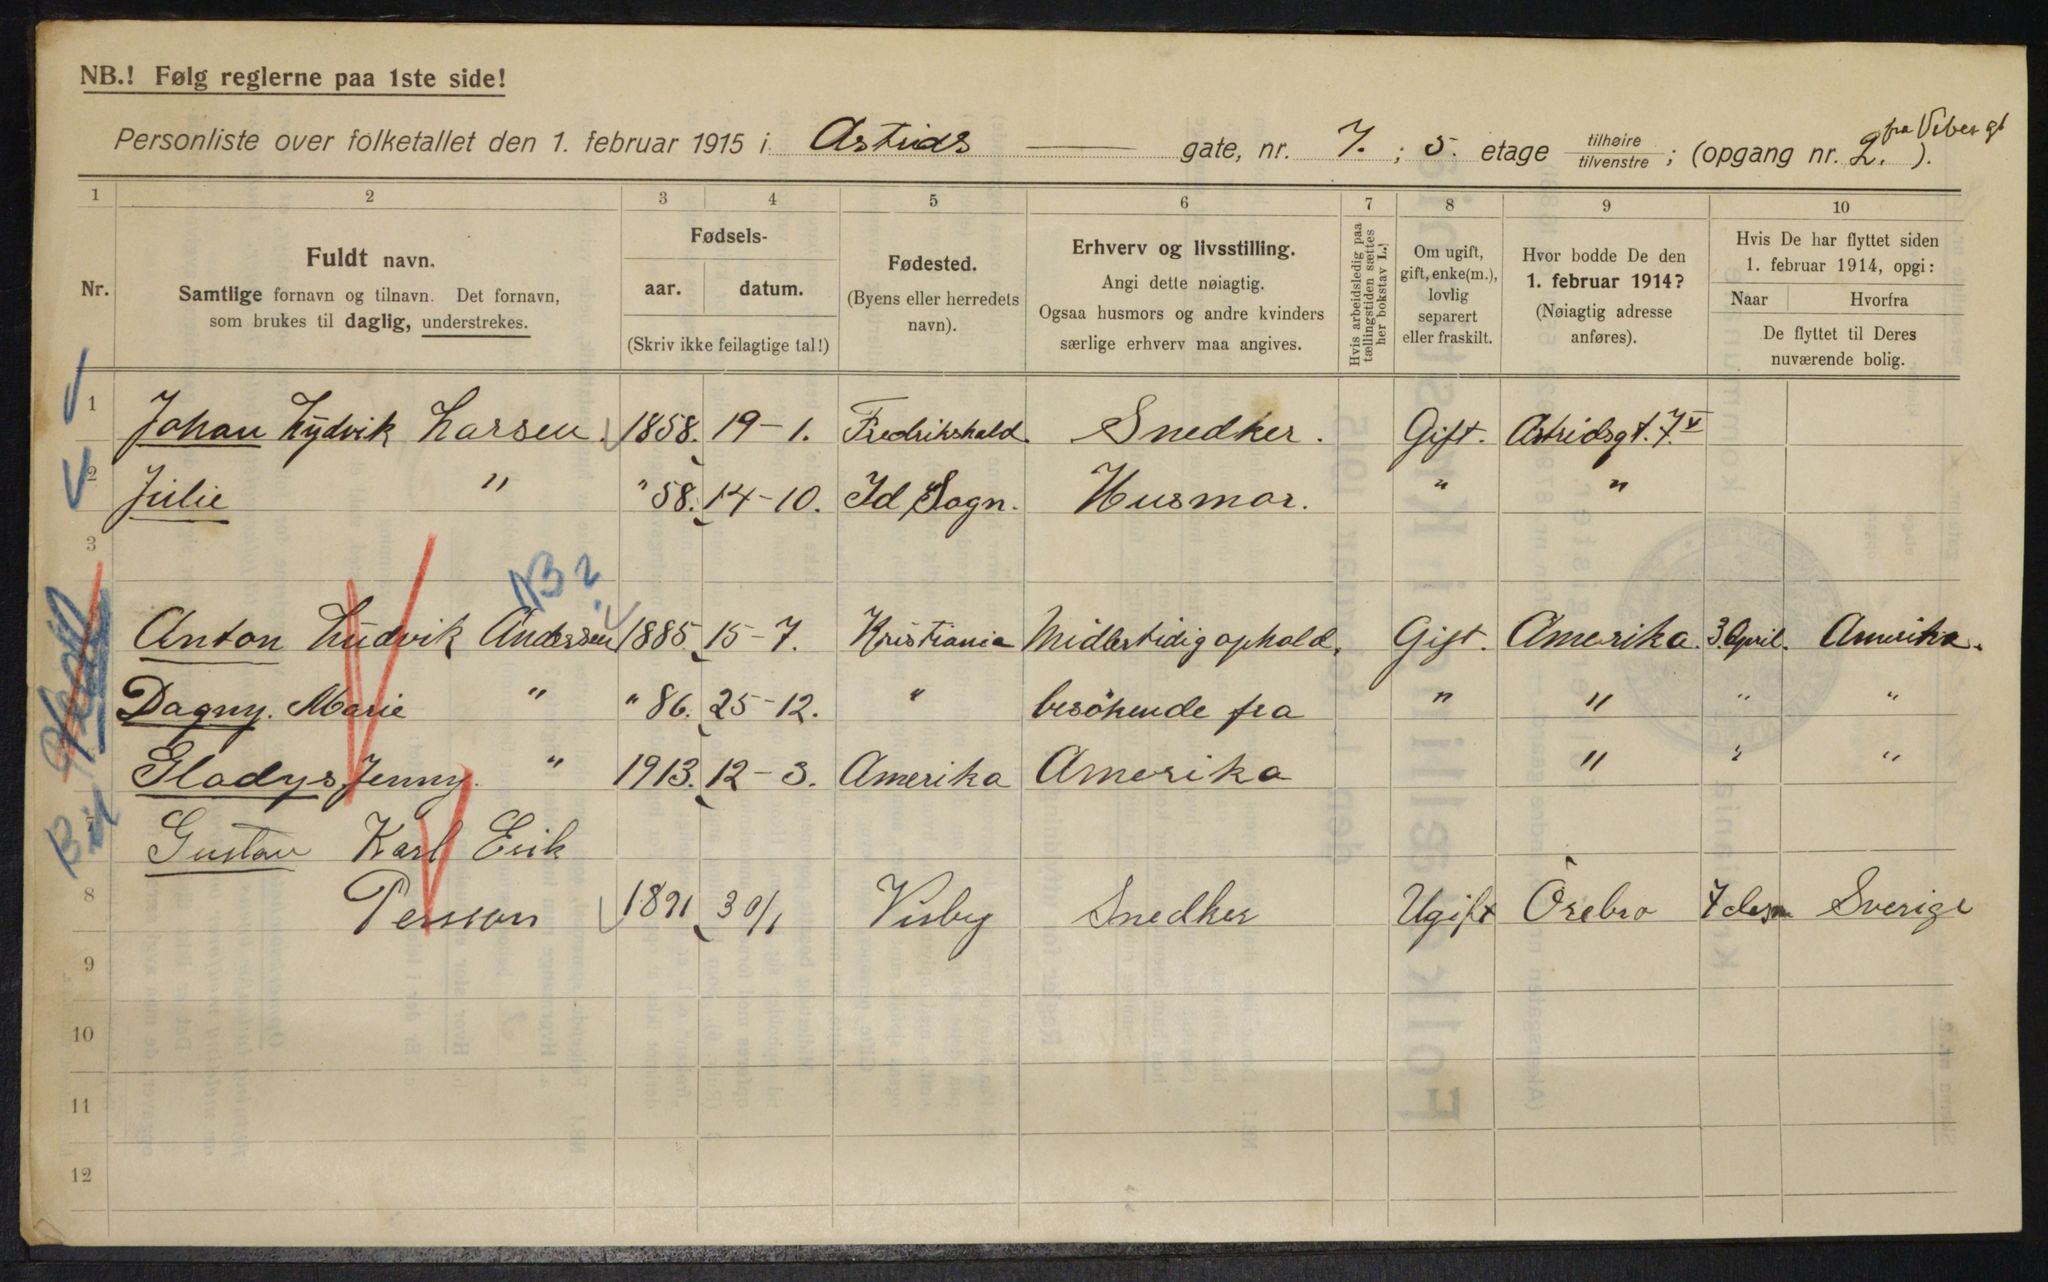 NB.! Følg reglerne paa 1ste side!
Personliste over folketallet den 1. februar 1915 i Astrids gate, nr. 7. ; 5. etage tilhøire tilvenstre ; (opgang nr. 2. fra Vibergt ).
1 2 3 4 5 6 7 8 9 10
Nr.
Fuldt navn.
Samtlige fornavn og tilnavn. Det fornavn,
som brukes til daglig, understrekes.
Fødsels-
aar. datum.
(Skriv ikke feilagtige tal!)
Fødested.
(Byens eller herredets
navn).
Erhverv og livsstilling.
Angi dette nøiagtig.
Ogsaa husmors og andre kvinders
særlige erhverv maa angives.
Hvis arbeidsledig paa
tællingstiden sættes
her bokstav L.!
Om ugift,
gift, enke(m.),
lovlig
separert
eller fraskilt.
Hvor bodde De den
1. februar 1914?
(Nøiagtig adresse
anføres).
Hvis De har flyttet siden
1. februar 1914, opgi:
Naar Hvorfra
De flyttet til Deres
nuværende bolig.
1 Johan Lydvik Larsen. 1858. 19-1. Fredrikshald. Snedker. Gift. Astridsgt. 7 V
2 Julie " " 58. 14-10. Id Sogn. Husmor. " "
3
NB?
Anton Ludvik Andersen 1885. 15-7. Kristiania Midlertidig ophold. Gift. Amerika. 3. April. Amerika.
Dagny. Marie " " 86. 25-12. " besökende fra " " " "
Gladys Jenny. " 1913. 12-3. Amerika Amerika " " "
7 Gustav Karl Erik
8 Persson 1891 30/1 Visby Snedker Ugift Örebro 7 desm Sverige
9
10
11
12